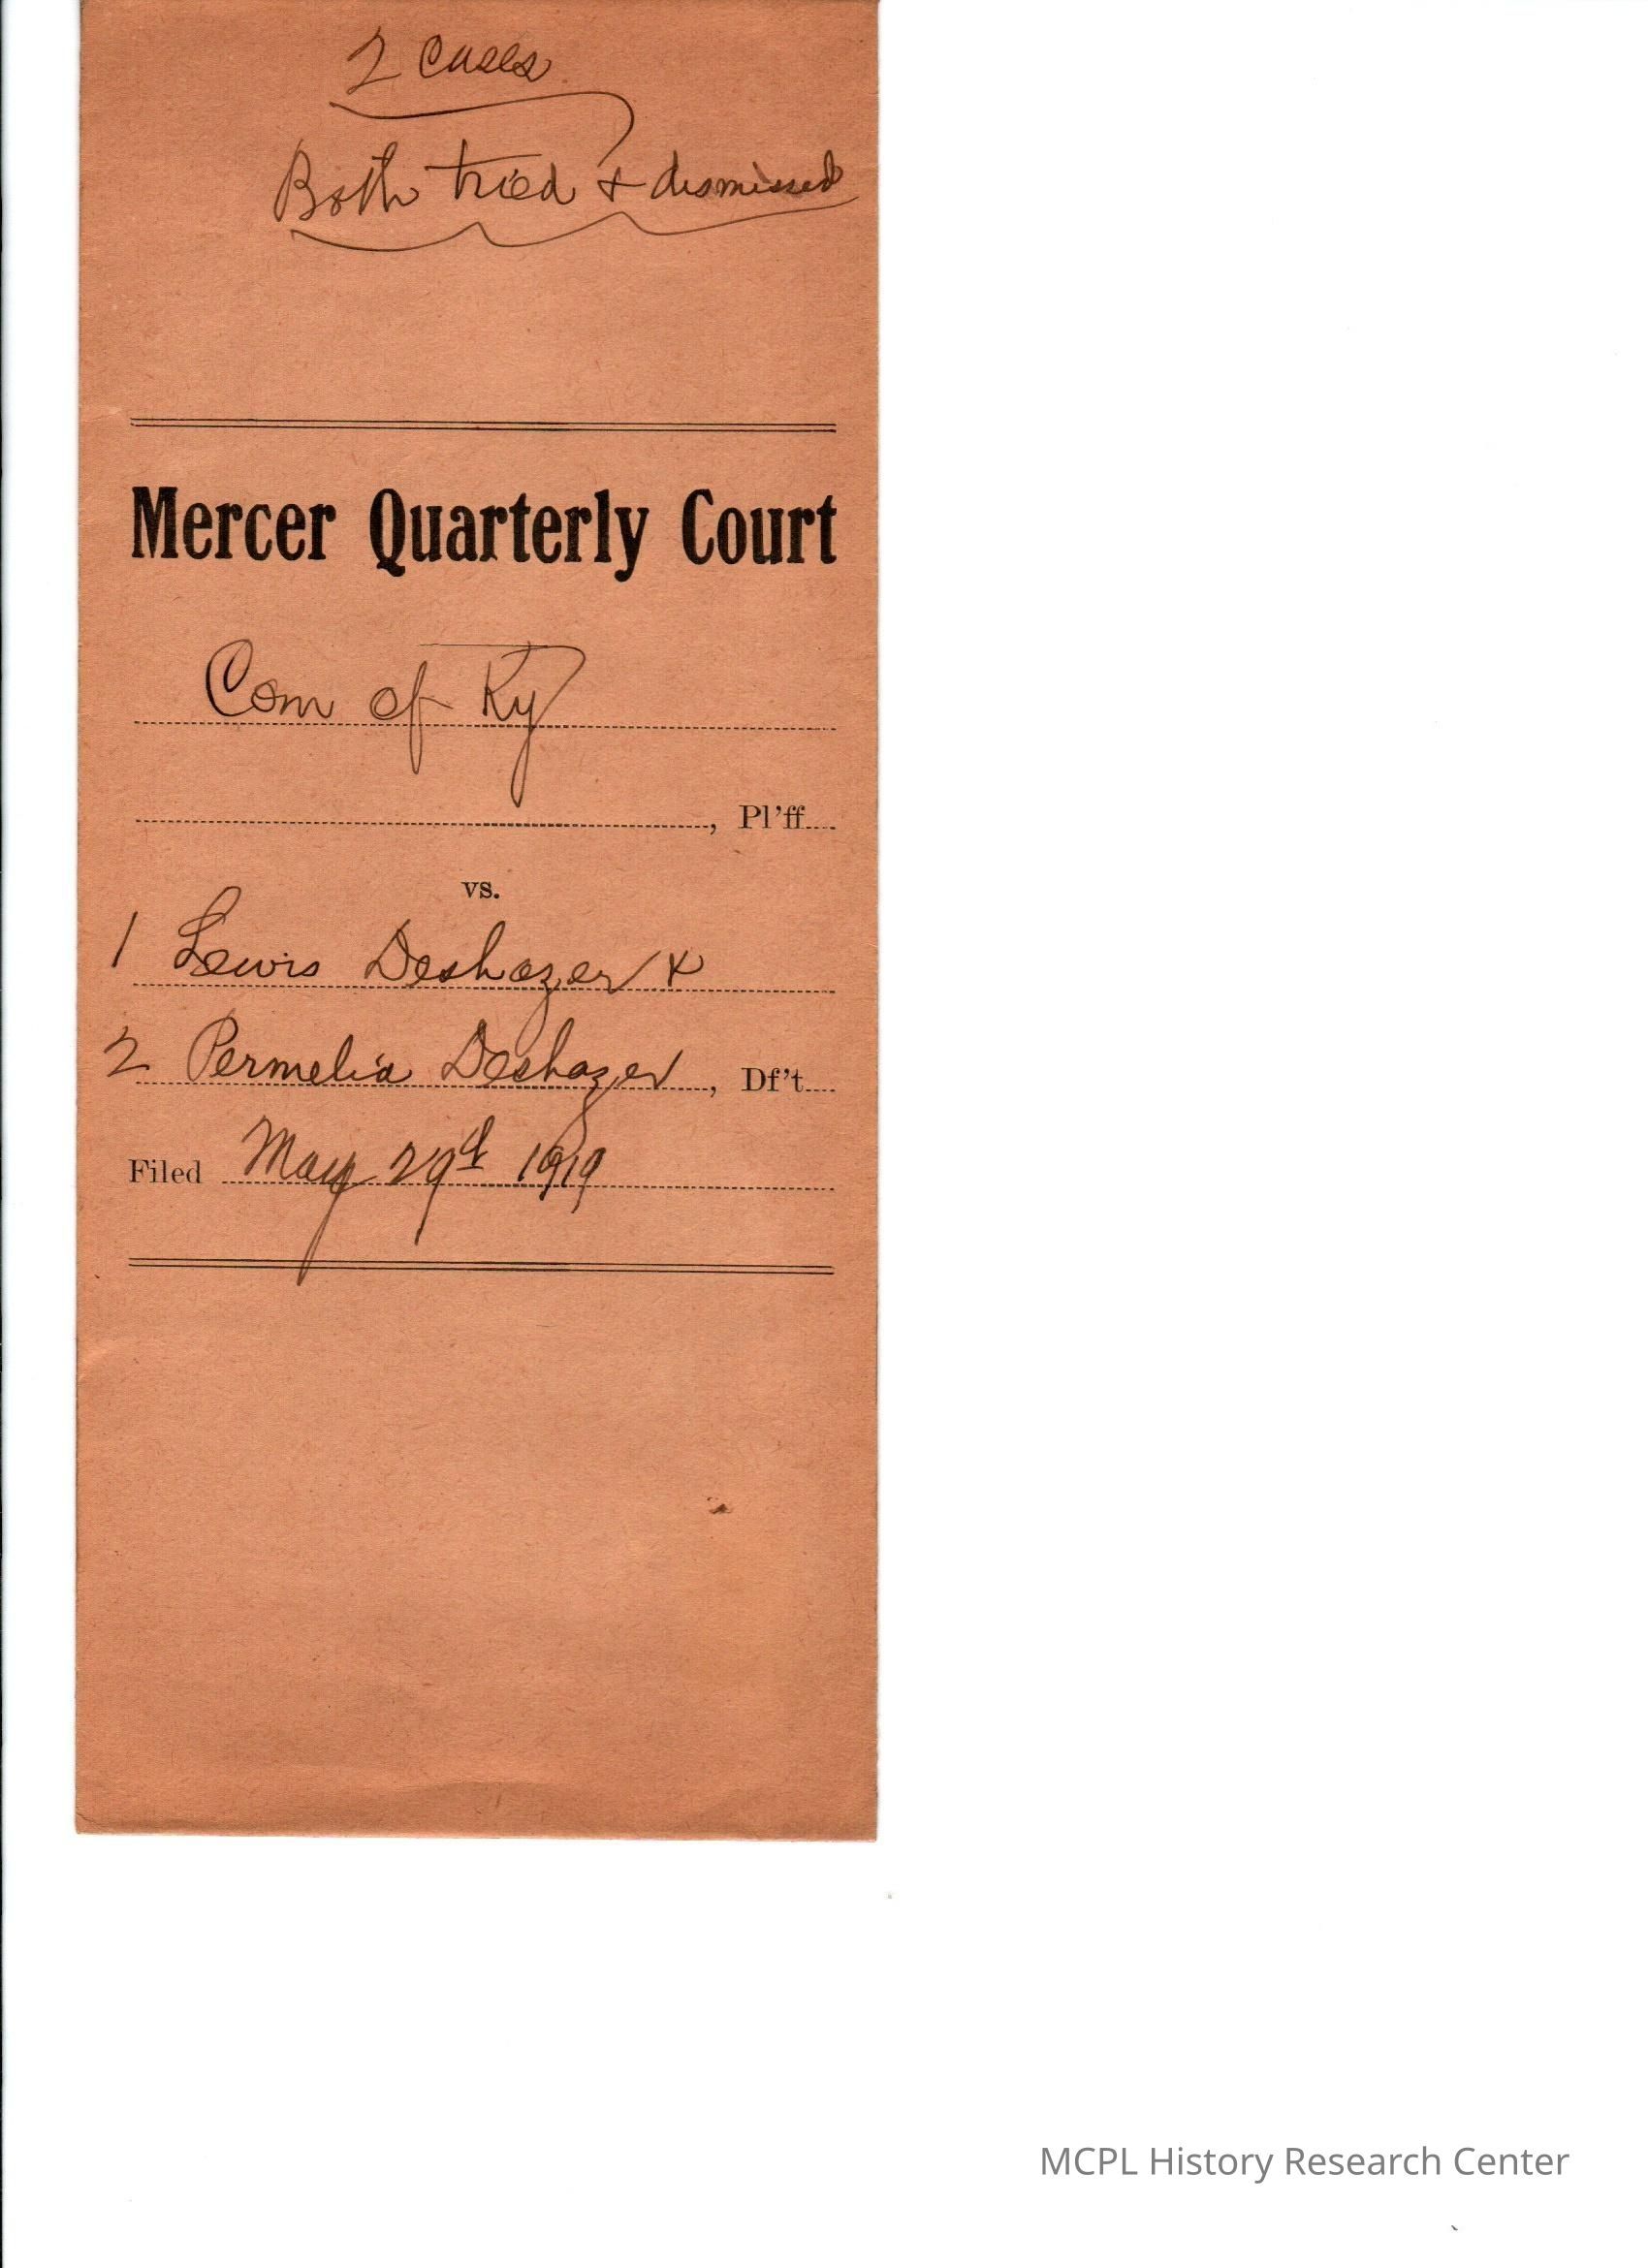 2 cases
Both tried & dismissed
Mercer Quarterly Court
Com of Ky
, Pl'ff
vs.
1 Lewis Deshazer &
2 Permelia Deshazer, Df't
Filed May 29d 1919
MCPL History Research Center